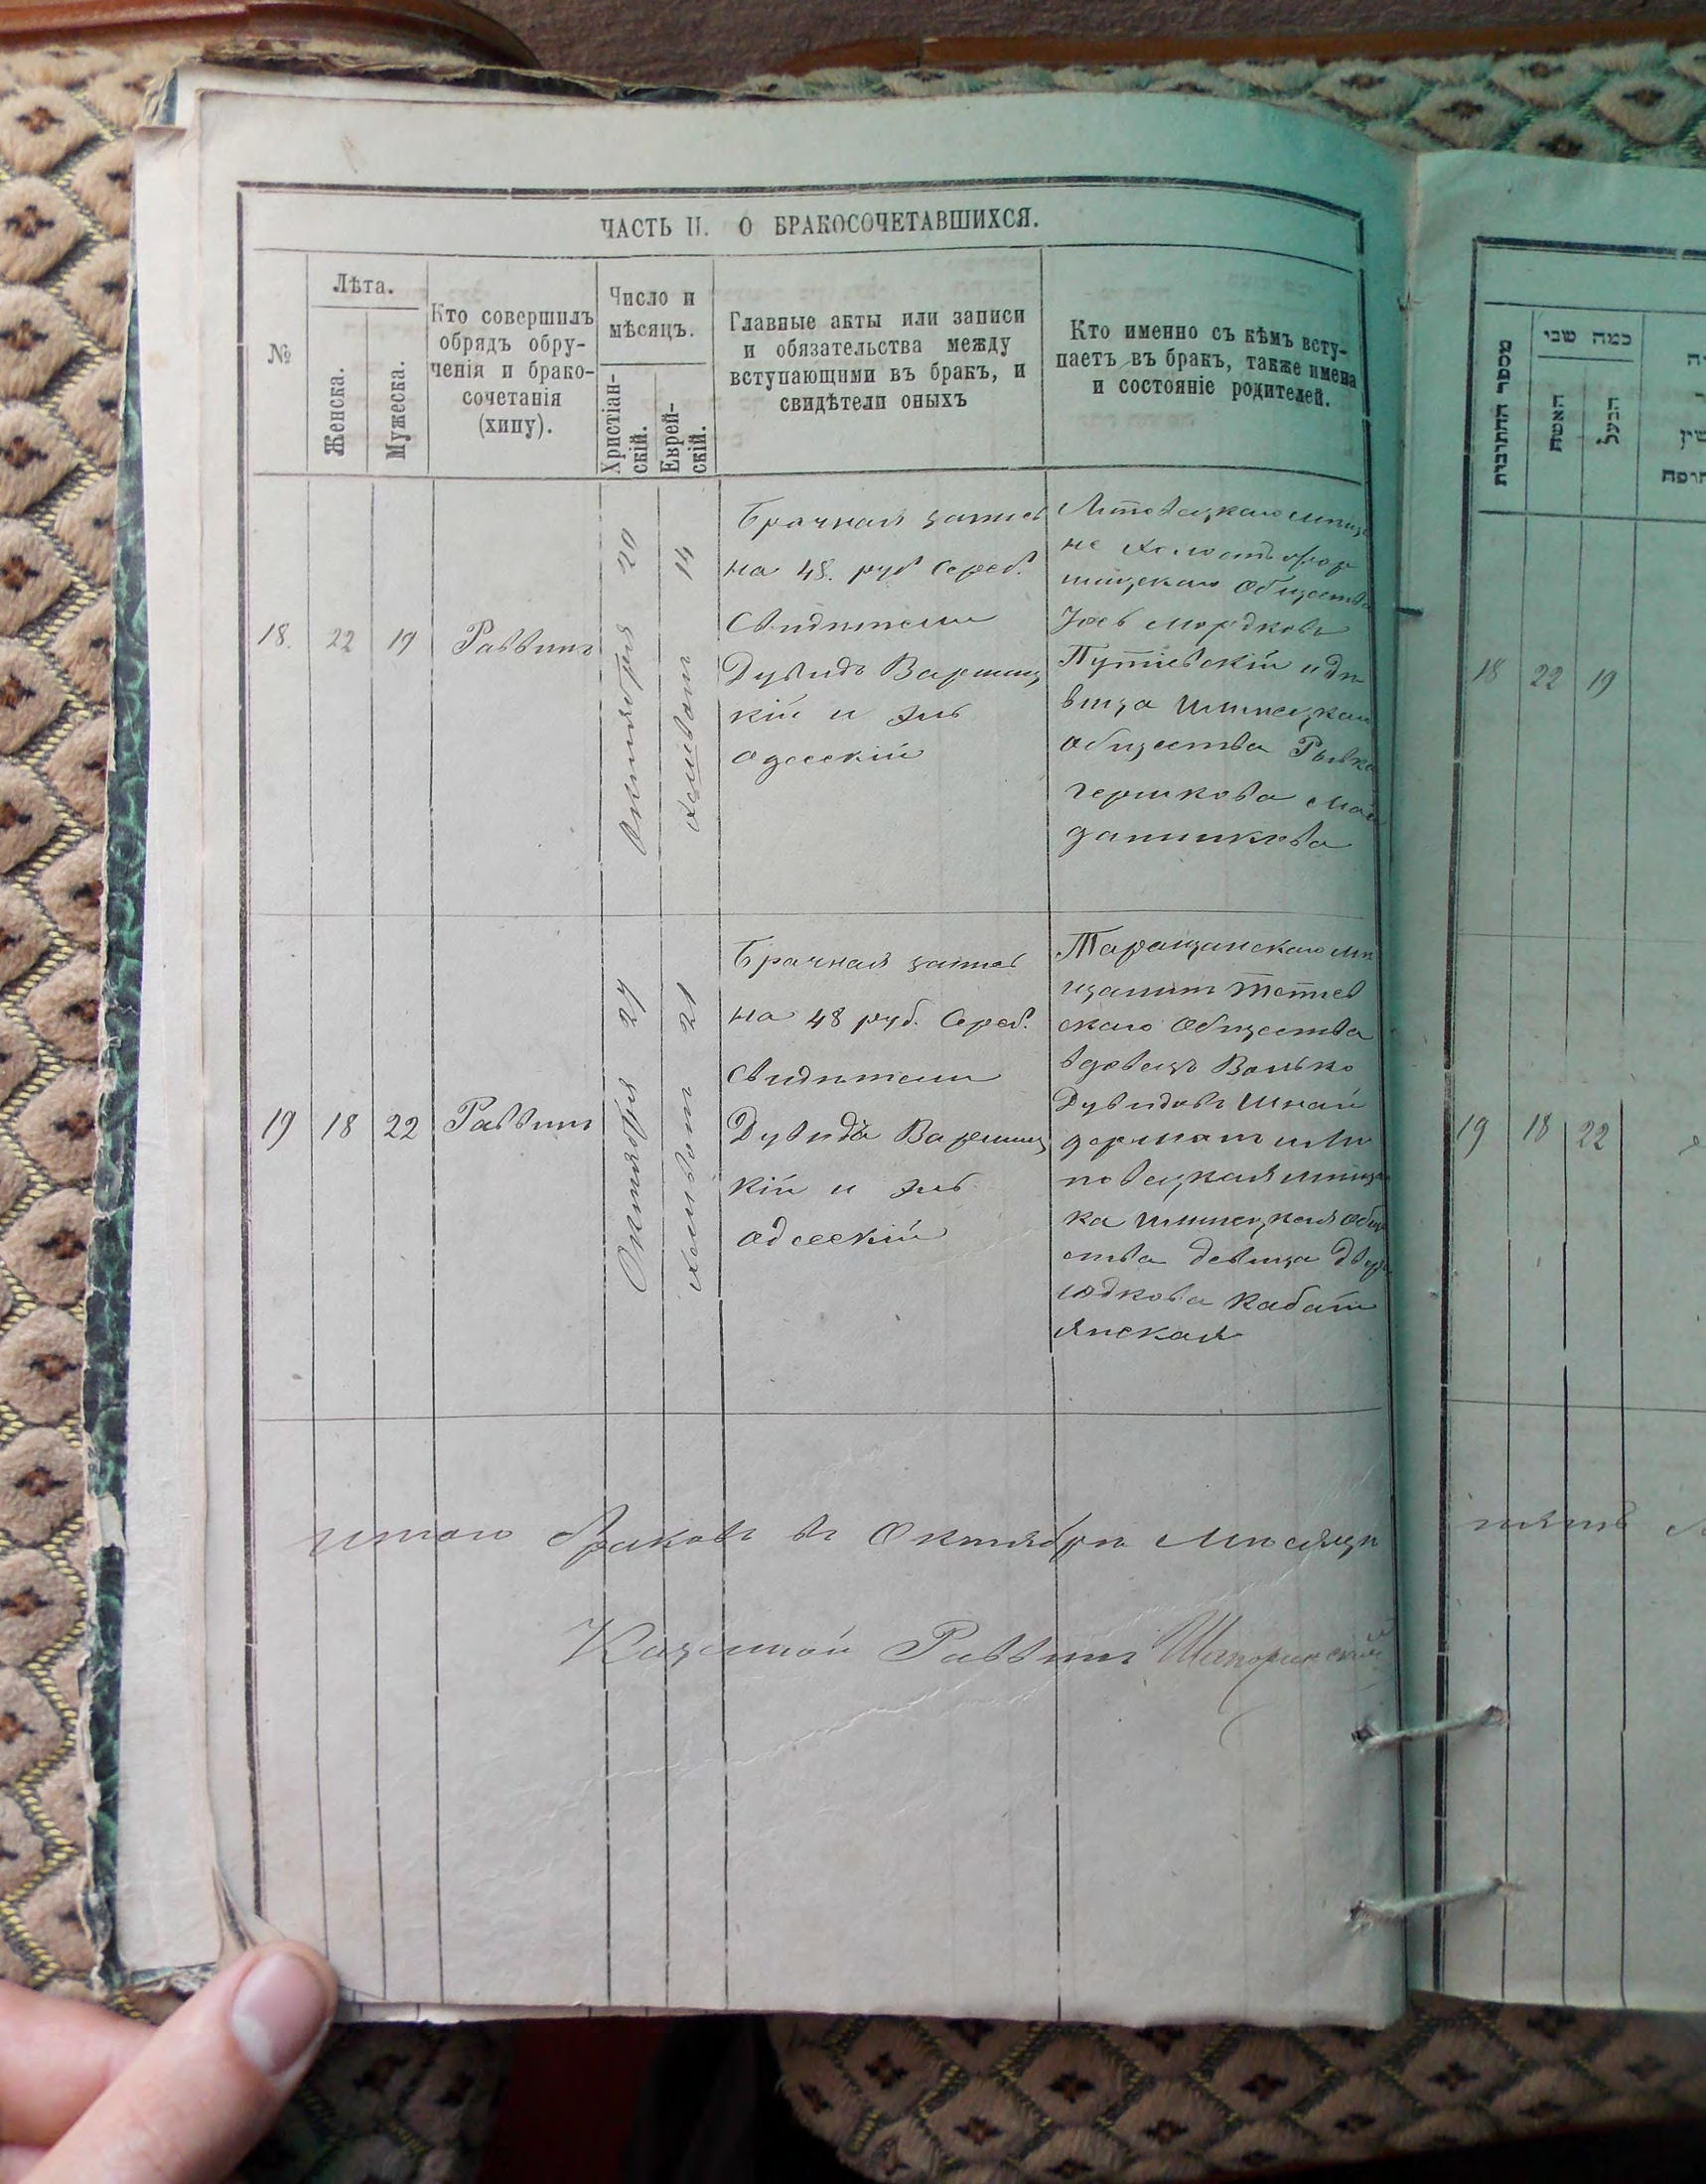 ЧАСТЬ II. О БРАКОСОЧЕТАВШИХСЯ.
№
Лѣта.
Женска.
Мужеска.
Кто совершилъ
обрядъ обру-
ченія и брако-
сочетанія
(хипу).
Число и
мѣсяцъ.
Христіан-
скій.
Еврей-
скій.
Главные акты или записи
и обязательства между
вступающими въ бракъ, и
свидѣтели оныхъ
Кто именно съ кѣмъ всту-
паетъ въ бракъ, также имена
и состояніе родителей.
18.
22
19
Раввинъ
Октября 20
Хешвонъ 14
Брачная запись
на 48. руб Сереб.
Свидѣтели
Дувидъ Варшиц
кій и Эль
Одесскій
Общества
Іось Мордковъ
Путіевскій и дѣ
вица
общества Рывка
Гершкова Май
даникова
19
18
22
Раввинъ
Октября 27
Хешвон 21
Брачная запись
на 48 руб. Сереб.
Свидѣтели
Дувидъ Варшиц
кій и Эль
Одесскій
Таращанскаго мѣ
щанинъ Тетіев
скаго Общества
вдовецъ Волько
Дувидовъ Шнай
дерман и Ли
повецкая мѣщан
ка
ства девица
Іодкова
янская
Итого браковъ въ Октябрѣ мѣсяцѣ
Казенной Раввинъ
מספר החתונות
כמה שני
האשה
הבעל
18
22
19
19
18
22
пять